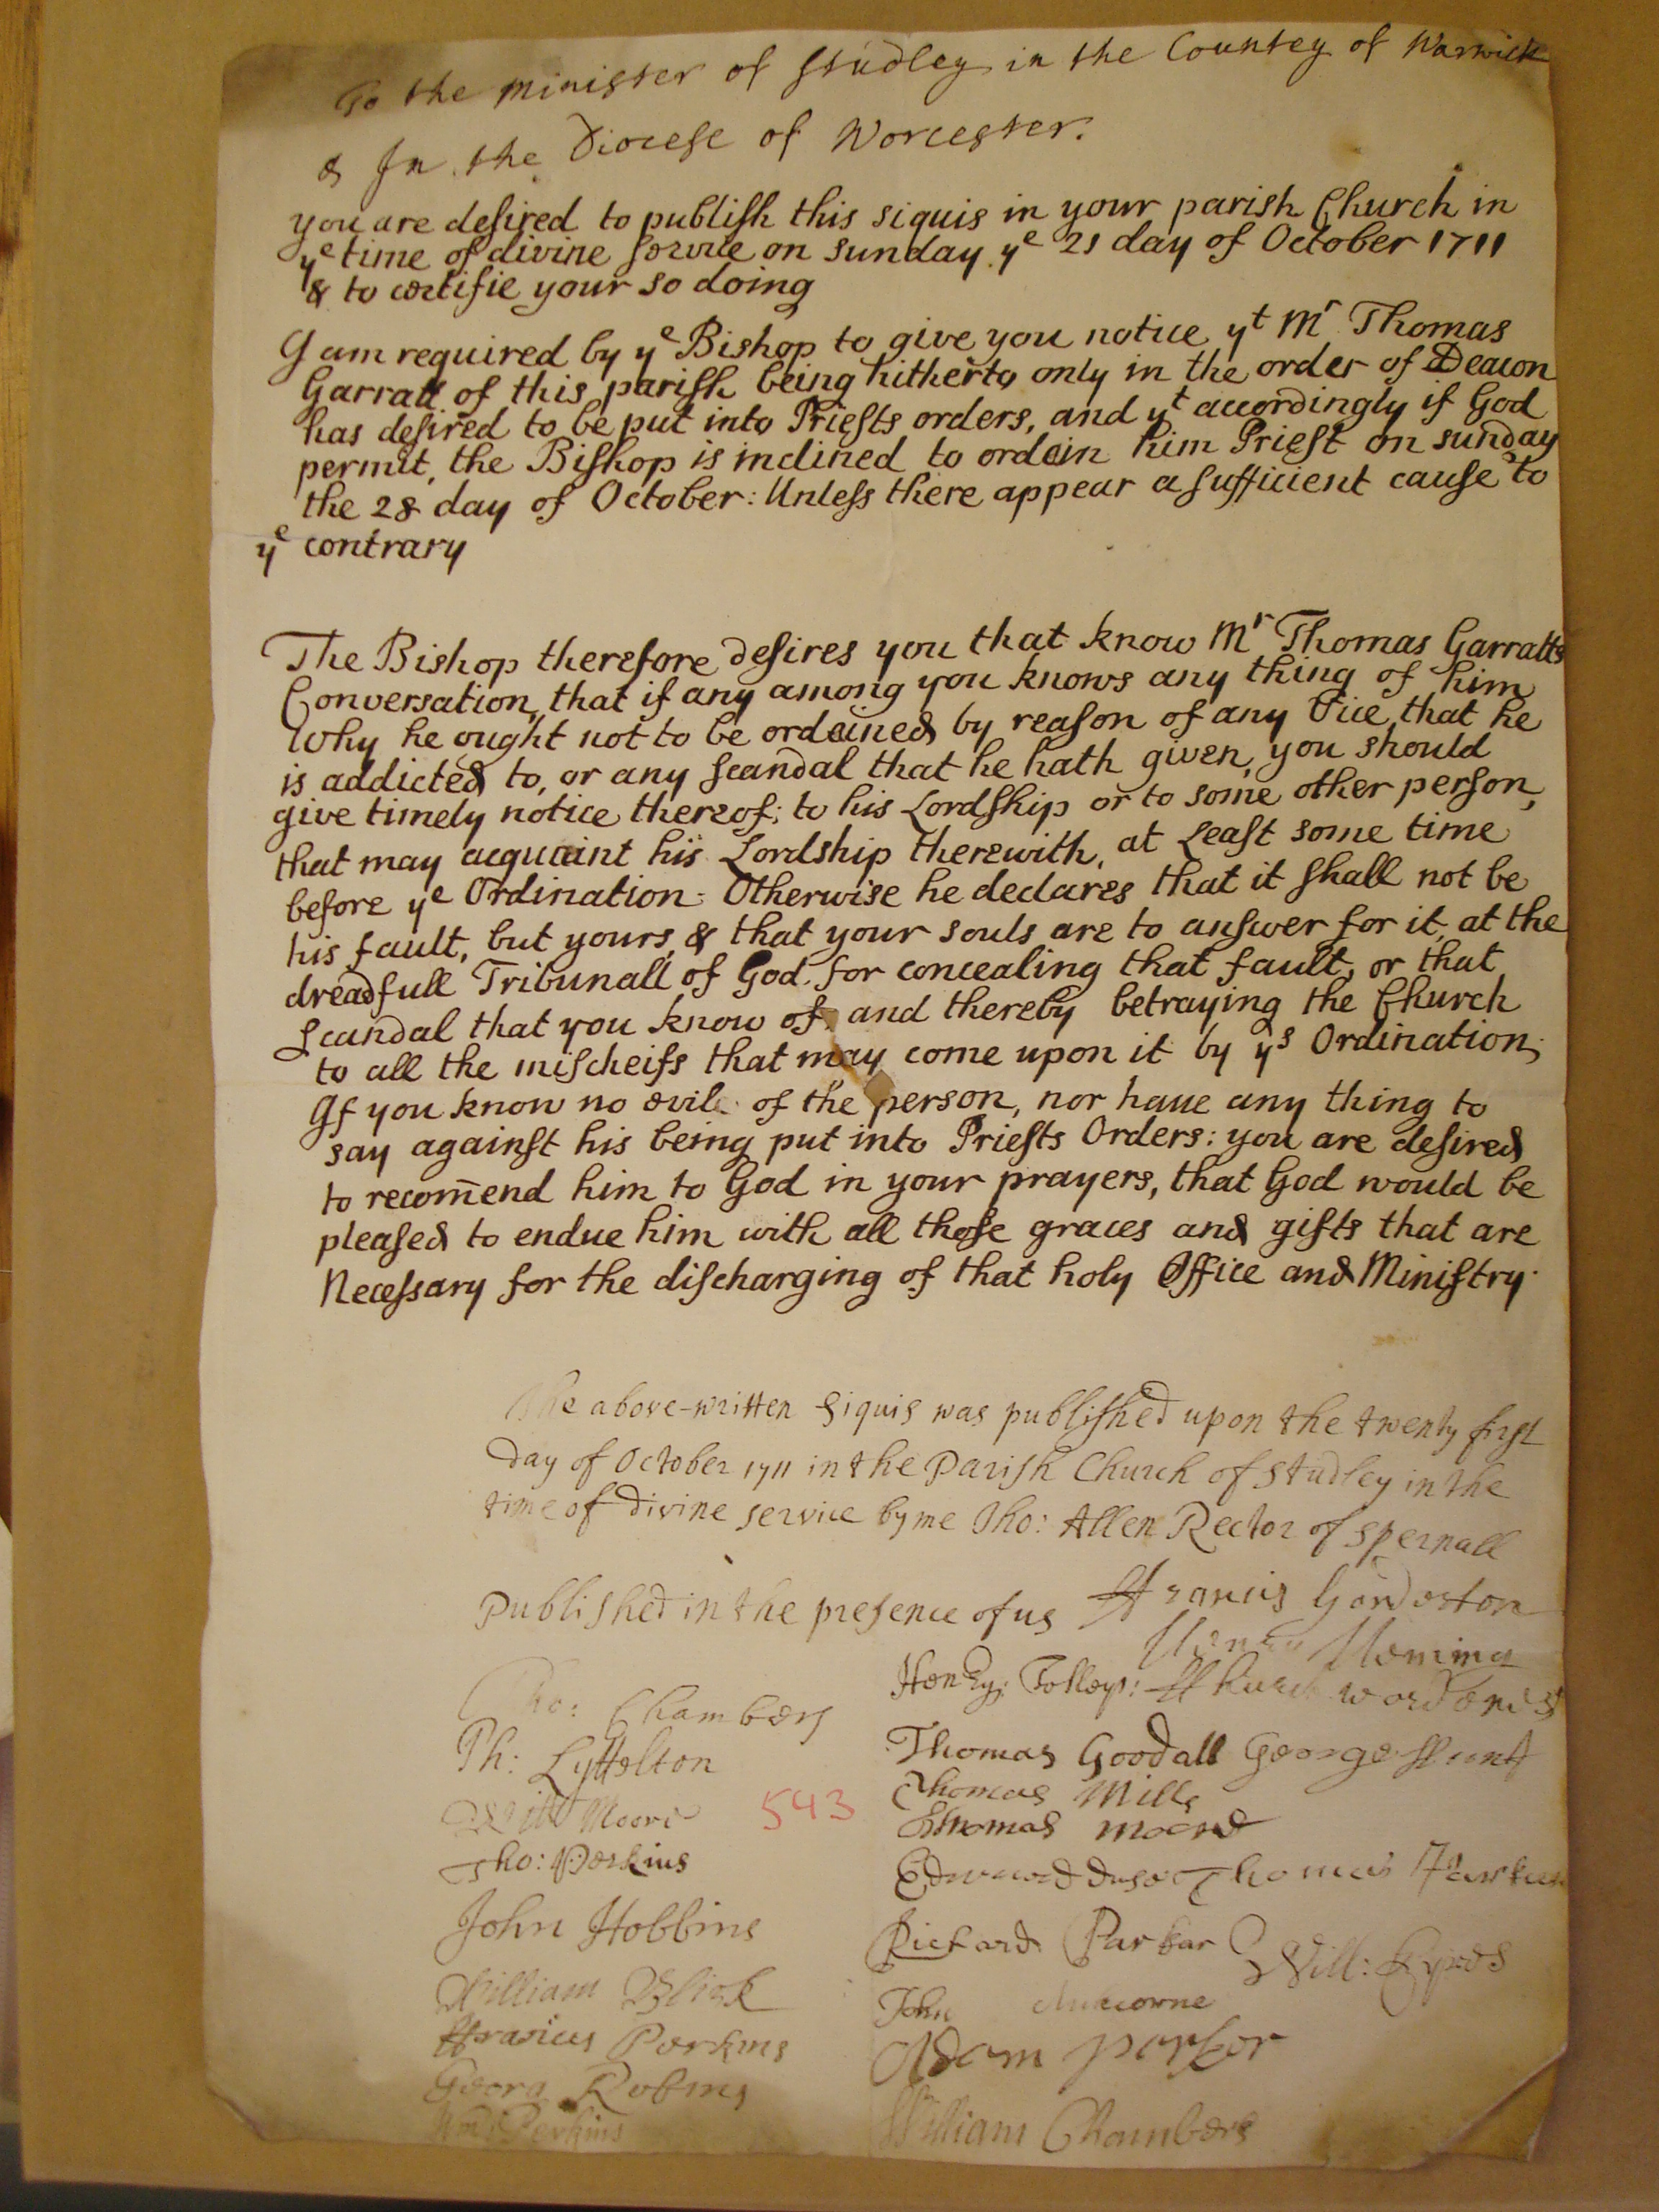 To the Minister of Studley in the Countey of Warwick
& In the Diocese of Worcester.
you are desired to publish this siquis in your parish Church in
ye time of divine service on sunday ye 21 day of October 1711
& to certifie your so doing
I am required by ye Bishop to give you notice yt Mr Thomas
Garratt of this parish being hitherto only in the order of Deacon
has desired to be put into Priests orders, and yt accordingly if God
permit, the Bishop is inclined to ordain him Priest on sunday
the 28 day of October: Unless there appear a sufficient cause to
ye contrary
The Bishop therefore desires you that know Mr Thomas Garratts
Conversation, that if any among you knows any thing of him
Why he ought not to be ordained by reason of any Vice that he
is addicted to, or any scandal that he hath given, you should
give timely notice thereof; to his Lordship or to some other person,
that may acquaint his Lordship therewith, at Least some time
before ye Ordination: Otherwise he declares that it shall not be
his fault, but yours, & that your souls are to answer for it, at the
dreadfull Tribunall of God. for concealing that fault, or that
Scandal that you know of, and thereby betraying the Church
to all the mischeifs that may come upon it by ys Ordination;
If you know no evile of the person, nor have any thing to
say against his being put into Priests Orders: you are desired
to recom̄end him to God in your prayers, that God would be
pleased to endue him with all those graces and gifts that are
Necessary for the discharging of that holy Office and Ministry.
The above-written Siquis was published upon the twenty first
day of October 1711 in the Parish Church of Studley in the
time of divine service by me Tho: Allen Rector of Spernall
Published in the presence of us Francis
Heming
Henry: Church wardens
Tho: Chambers
Ph: Lyttelton
Thomas Goodall George Hunt
Will Moore
543
Thomas Mills
Thomas Moore
Tho: Perkins
Edward Thomas Parker
John Hobbins
Richard Parkar
Will:
William Blick
John
Francis Perkins
Adam parker
Georg Robins
Perkins
William Chambers